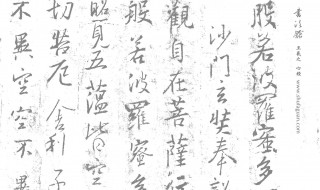 王羲之 心經
般若波羅蜜多
沙門玄奘奉詔
觀自在菩薩行
般若波羅蜜多
照見五蘊皆空
切苦厄舍利子
不異空空不異